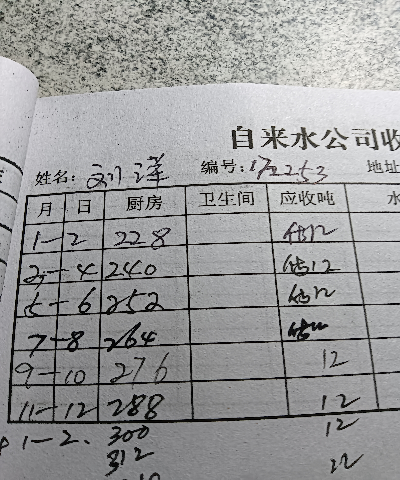 自来水公司收
姓名: 刘洋 编号: 172253 地址
月 日 厨房 卫生间 应收吨 水
1-2 228 估12
3-4 240 估12
5-6 252 估12
7-8 264 估12
9-10 276 12
11-12 288 12
1-2. 300 12
312 12